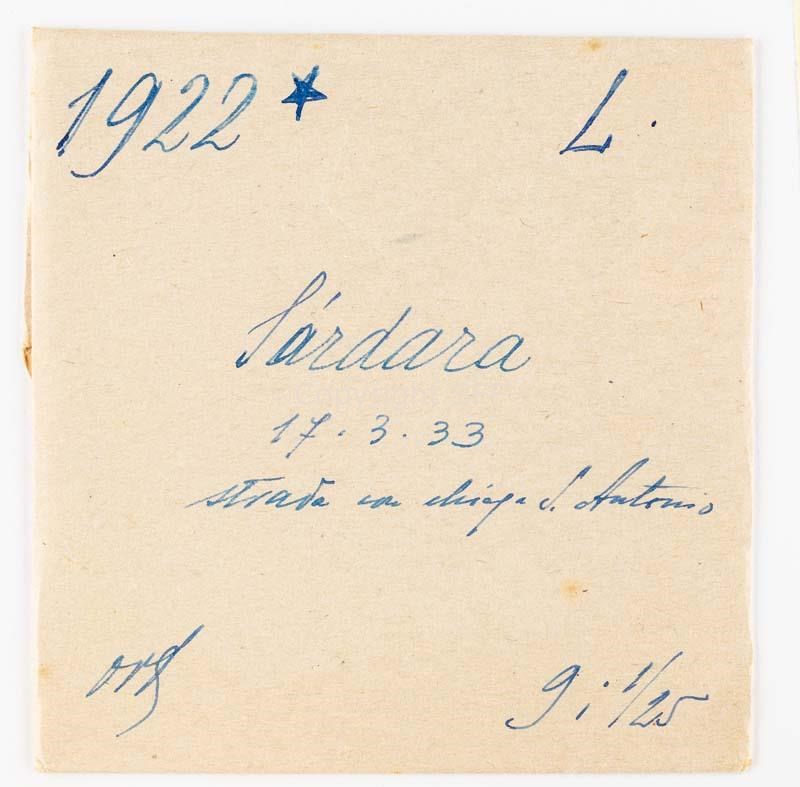 1922 * L.
Sárdara
17.3.33
strada con chiesa S. Antonio
9 i 1/25